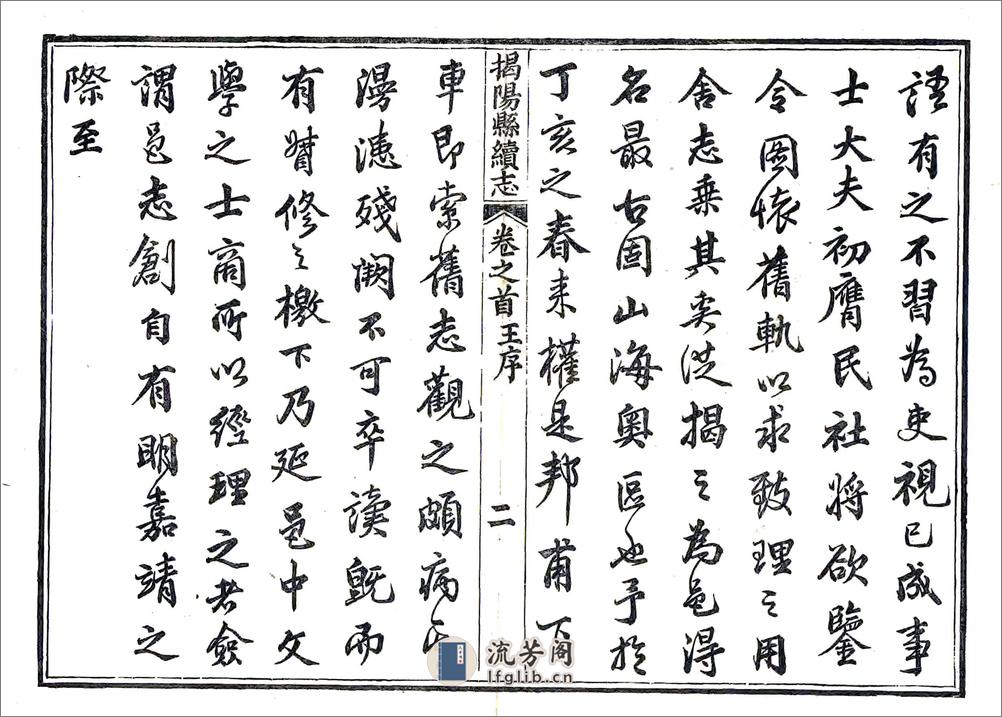 語有之不習為吏視已成事
士大夫初膺民社將欲鑒
令圖懷舊軌以求致理之用
舍志乘其奚從揭之為邑得
名最古固山海奧區也予於
丁亥之春来權是邦甫下
揭陽縣續志 卷之首王序 二
車即索舊志觀之頗病其
漫漶殘闕不可卒讀既而
有督修之檄下乃延邑中文
學之士商所以經理之者僉
謂邑志創自有明嘉靖之
際至
流芳阁
lfglib.cn